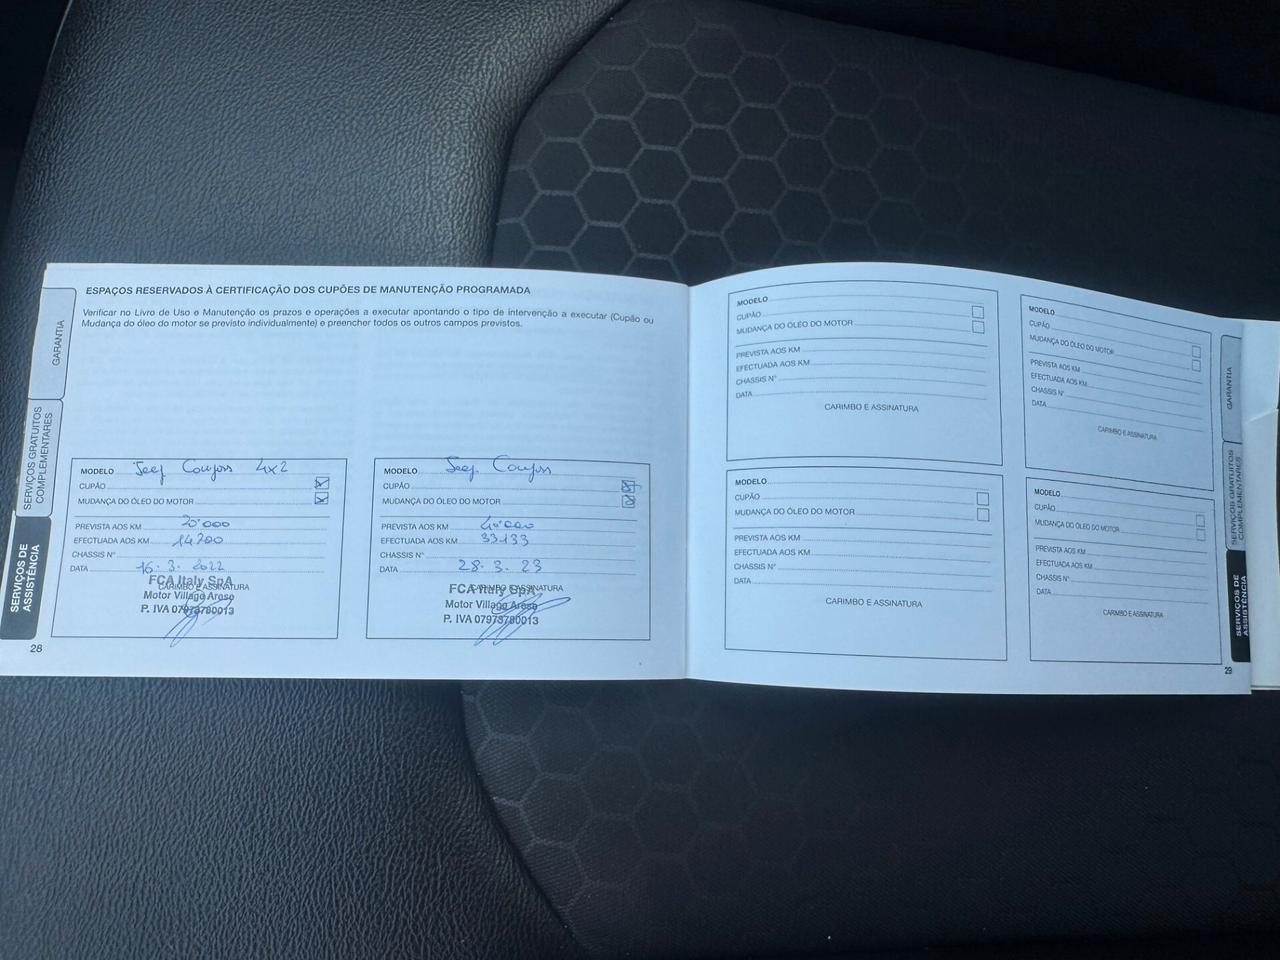 ESPAÇOS RESERVADOS À CERTIFICAÇÃO DOS CUPÕES DE MANUTENÇÃO PROGRAMADA
Verificar no Livro de Uso e Manutenção os prazos e operações a executar apontando o tipo de intervenção a executar (Cupão ou
Mudança do óleo do motor se previsto individualmente) e preencher todos os outros campos previstos.
GARANTIA
SERVIÇOS GRATUITOS
COMPLEMENTARES
SERVIÇOS DE
ASSISTÊNCIA
MODELO Jeep Compass 4x2
CUPÃO
MUDANÇA DO ÓLEO DO MOTOR
PREVISTA AOS KM 20'000
EFECTUADA AOS KM 14200
CHASSIS N°
DATA 16. 3. 2022
CARIMBO E ASSINATURA
FCA Italy SpA
Motor Village Arese
P. IVA 07973780013
MODELO Jeep Compass
CUPÃO
MUDANÇA DO ÓLEO DO MOTOR
PREVISTA AOS KM 40'000
EFECTUADA AOS KM 33133
CHASSIS N°
DATA 28. 3. 23
CARIMBO E ASSINATURA
FCA Italy SpA
Motor Village Arese
P. IVA 07973780013
28
MODELO
CUPÃO
MUDANÇA DO ÓLEO DO MOTOR
PREVISTA AOS KM
EFECTUADA AOS KM
CHASSIS N°
DATA
CARIMBO E ASSINATURA
MODELO
CUPÃO
MUDANÇA DO ÓLEO DO MOTOR
PREVISTA AOS KM
EFECTUADA AOS KM
CHASSIS N°
DATA
CARIMBO E ASSINATURA
MODELO
CUPÃO
MUDANÇA DO ÓLEO DO MOTOR
PREVISTA AOS KM
EFECTUADA AOS KM
CHASSIS N°
DATA
CARIMBO E ASSINATURA
MODELO
CUPÃO
MUDANÇA DO ÓLEO DO MOTOR
PREVISTA AOS KM
EFECTUADA AOS KM
CHASSIS N°
DATA
CARIMBO E ASSINATURA
GARANTIA
SERVIÇOS GRATUITOS
COMPLEMENTARES
SERVIÇOS DE
ASSISTÊNCIA
29